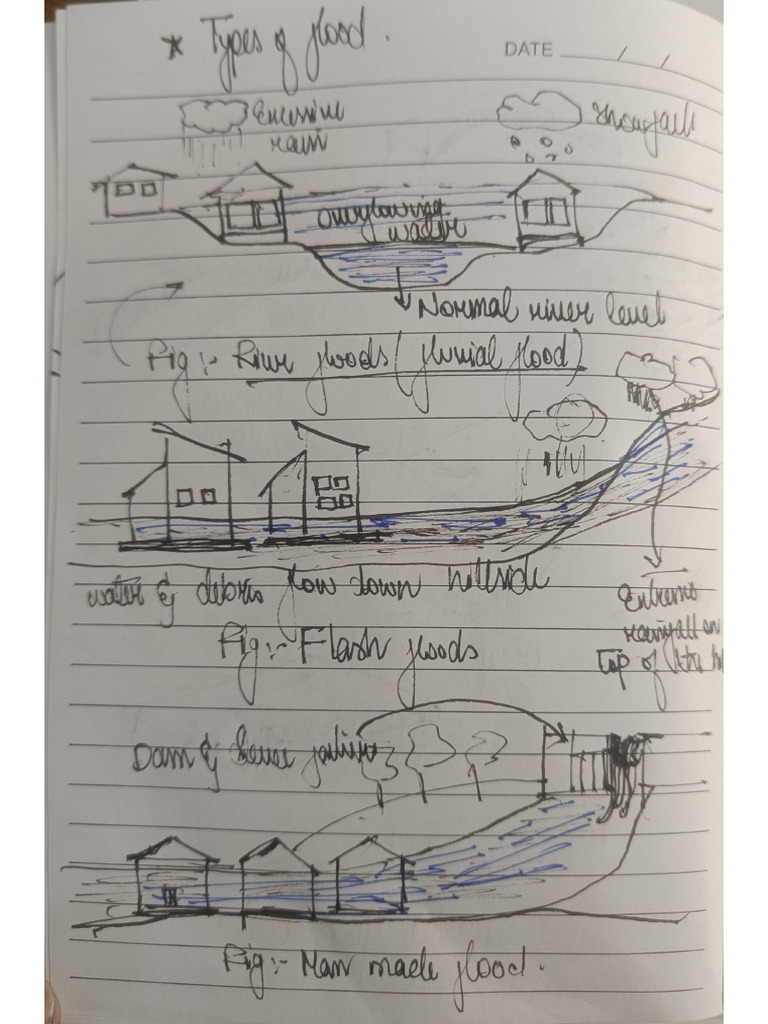 * Types of flood.
DATE / /
Excessive
rain
Snowfall
Overflowing
water
Normal river level
Fig :- River floods (fluvial flood)
water & debris flow down hillside
Extreme
rainfall on
Top of the
Fig :- Flash floods
Dam & levee failure
Fig :- Man made flood.